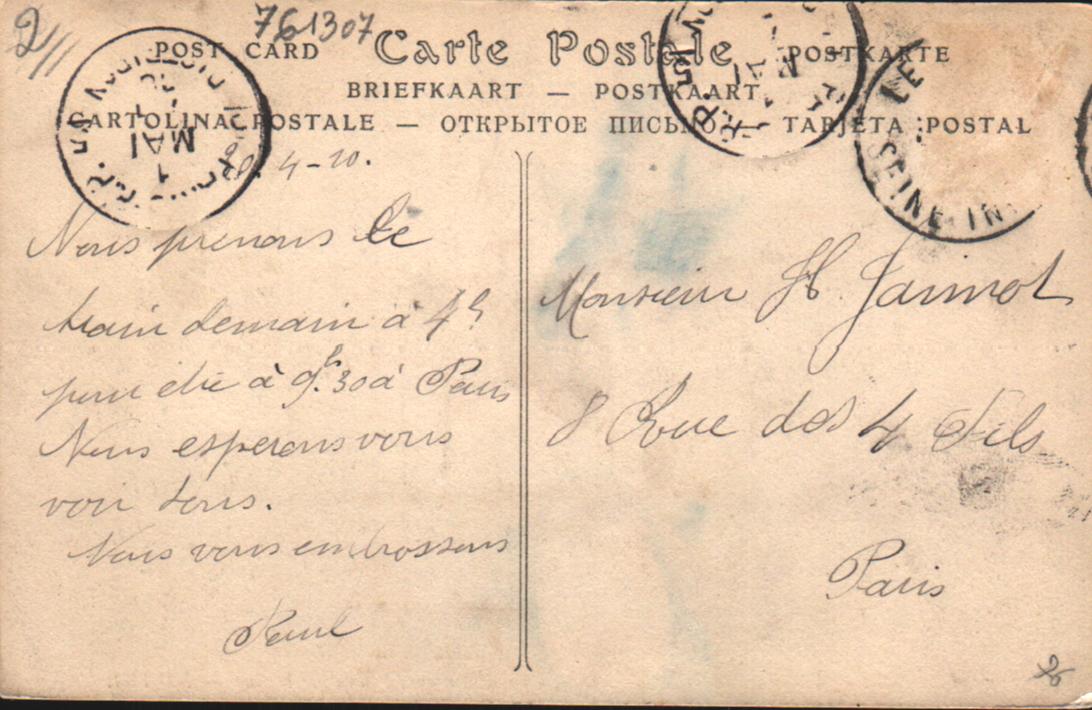 2
761307
POST CARD Carte Postale POSTKARTE
BRIEFKAART — POSTKAART
CARTOLINA POSTALE — ОТКРЫТОЕ ПИСЬМО — TARJETA POSTAL
1
MAI
LE
SEINE IN
4-10.
Nous prenons le
train demain à 4h
pour être à 9h.30 à Paris
Nous esperons vous
voir tous.
Nous vous embrassons
Paul
Monsieur H Jannot
8 Rue des 4 Fils
Paris